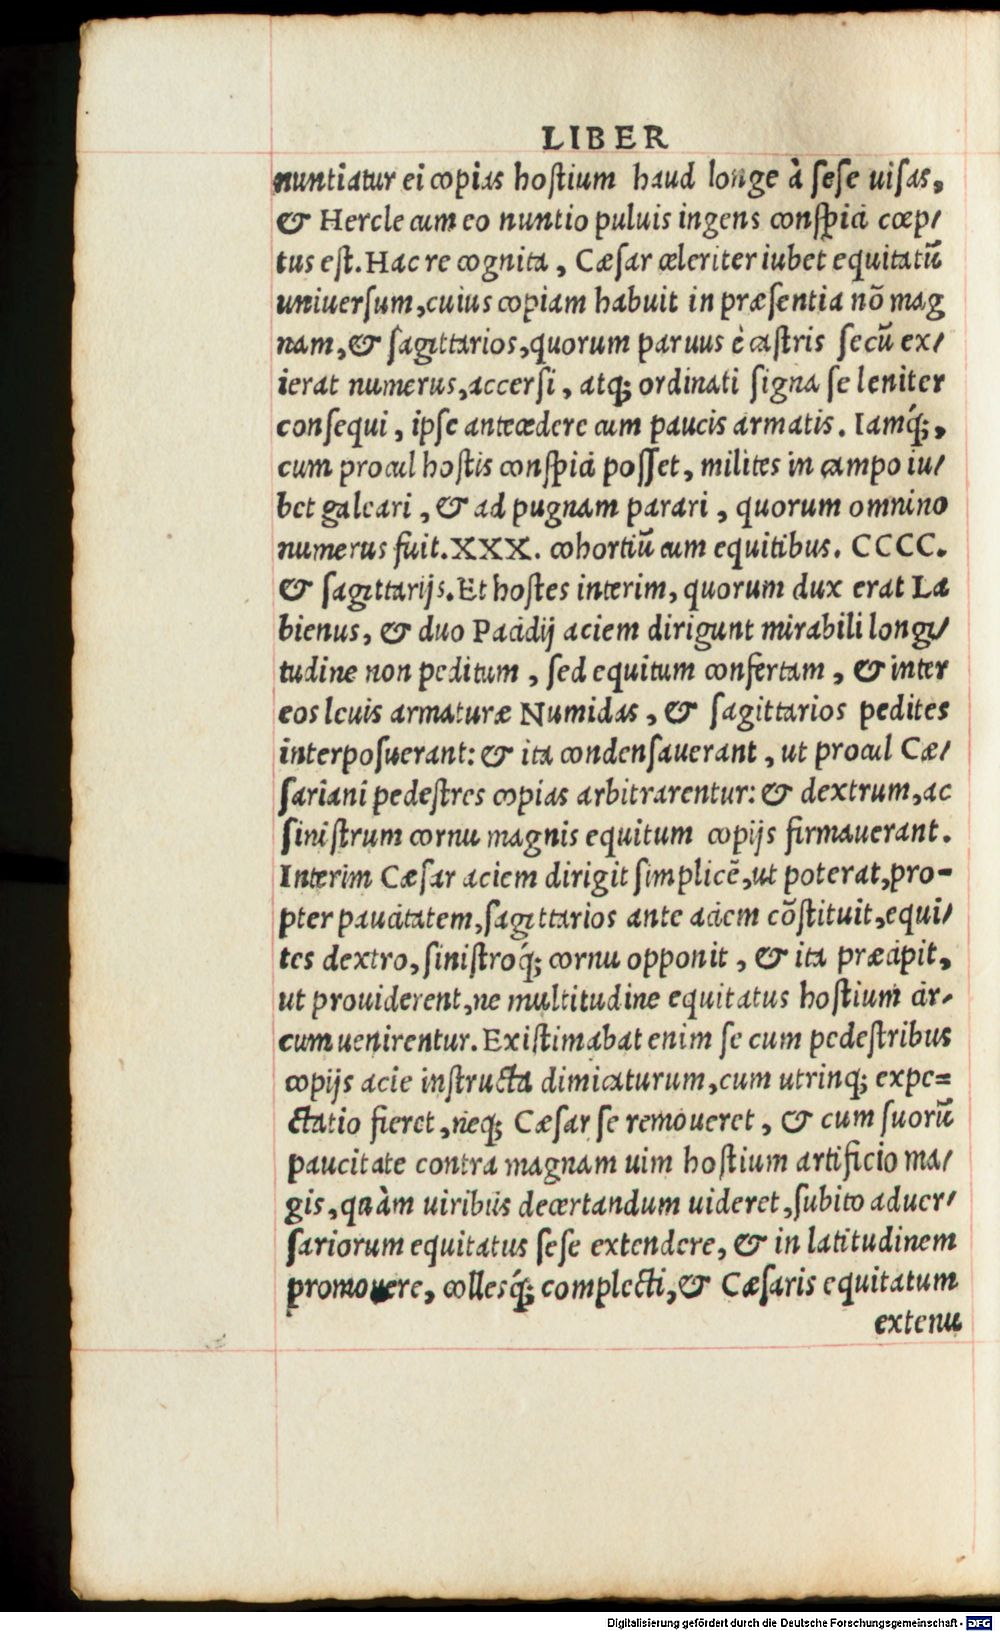 LIBER
nuntiatur ei copias hoſtium haud longe à ſeſe uiſas,
& Hercle cum eo nuntio puluis ingens conſpici cœp/
tus eſt. Hac re cognita, Cæſar celeriter iubet equitatū
uniuerſum, cuius copiam habuit in præſentia nō mag
nam, & ſagittarios, quorum paruus è caſtris ſecū ex/
ierat numerus, accerſi, atq; ordinati ſigna ſe leniter
conſequi, ipſe antecedere cum paucis armatis. Iamq́;,
cum procul hoſtis conſpici poſſet, milites in campo iu/
bet galeari, & ad pugnam parari, quorum omnino
numerus fuit. XXX. cohortiū cum equitibus. CCCC.
& ſagittarijs. Et hoſtes interim, quorum dux erat La
bienus, & duo Pacidij aciem dirigunt mirabili longi/
tudine non peditum, ſed equitum confertam, & inter
eos leuis armaturæ Numidas, & ſagittarios pedites
interpoſuerant: & ita condenſauerant, ut procul Cæ/
ſariani pedeſtres copias arbitrarentur: & dextrum, ac
ſiniſtrum cornu magnis equitum copijs firmauerant.
Interim Cæſar aciem dirigit ſimplicē, ut poterat, pro-
pter paucitatem, ſagittarios ante aciem cōſtituit, equi/
tes dextro, ſiniſtroq́; cornu opponit, & ita præcipit,
ut prouiderent, ne multitudine equitatus hoſtium cir-
cum uenirentur. Exiſtimabat enim ſe cum pedeſtribus
copijs acie inſtructa dimicaturum, cum utrinq; expe=
ctatio fieret, neq; Cæſar ſe remoueret, & cum ſuorū
paucitate contra magnam uim hoſtium artificio ma/
gis, quàm uiribus decertandum uideret, ſubito aduer/
ſariorum equitatus ſeſe extendere, & in latitudinem
promouere, collesq́; complecti, & Cæſaris equitatum
extenu
Digitalisierung gefördert durch die Deutsche Forschungsgemeinschaft - DFG